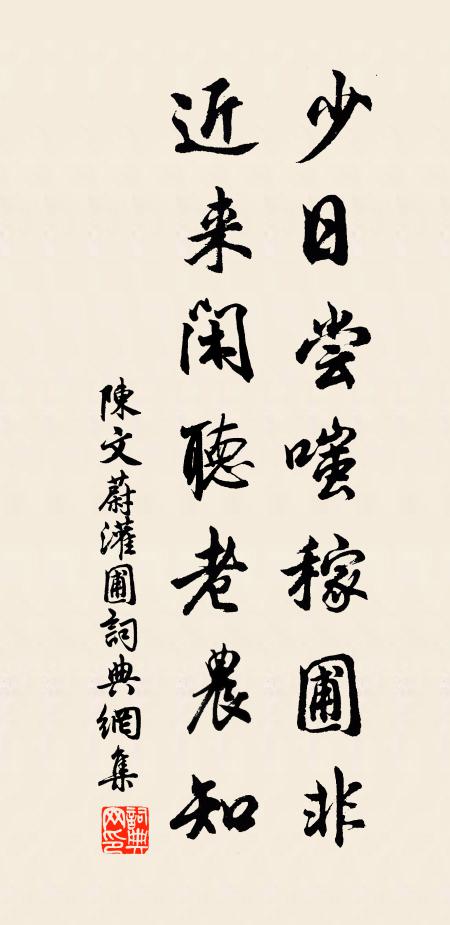 少日尝嗤稼圃非
近来闲聽老農知
陳文蔚灌圃詞典網集
詞典网印